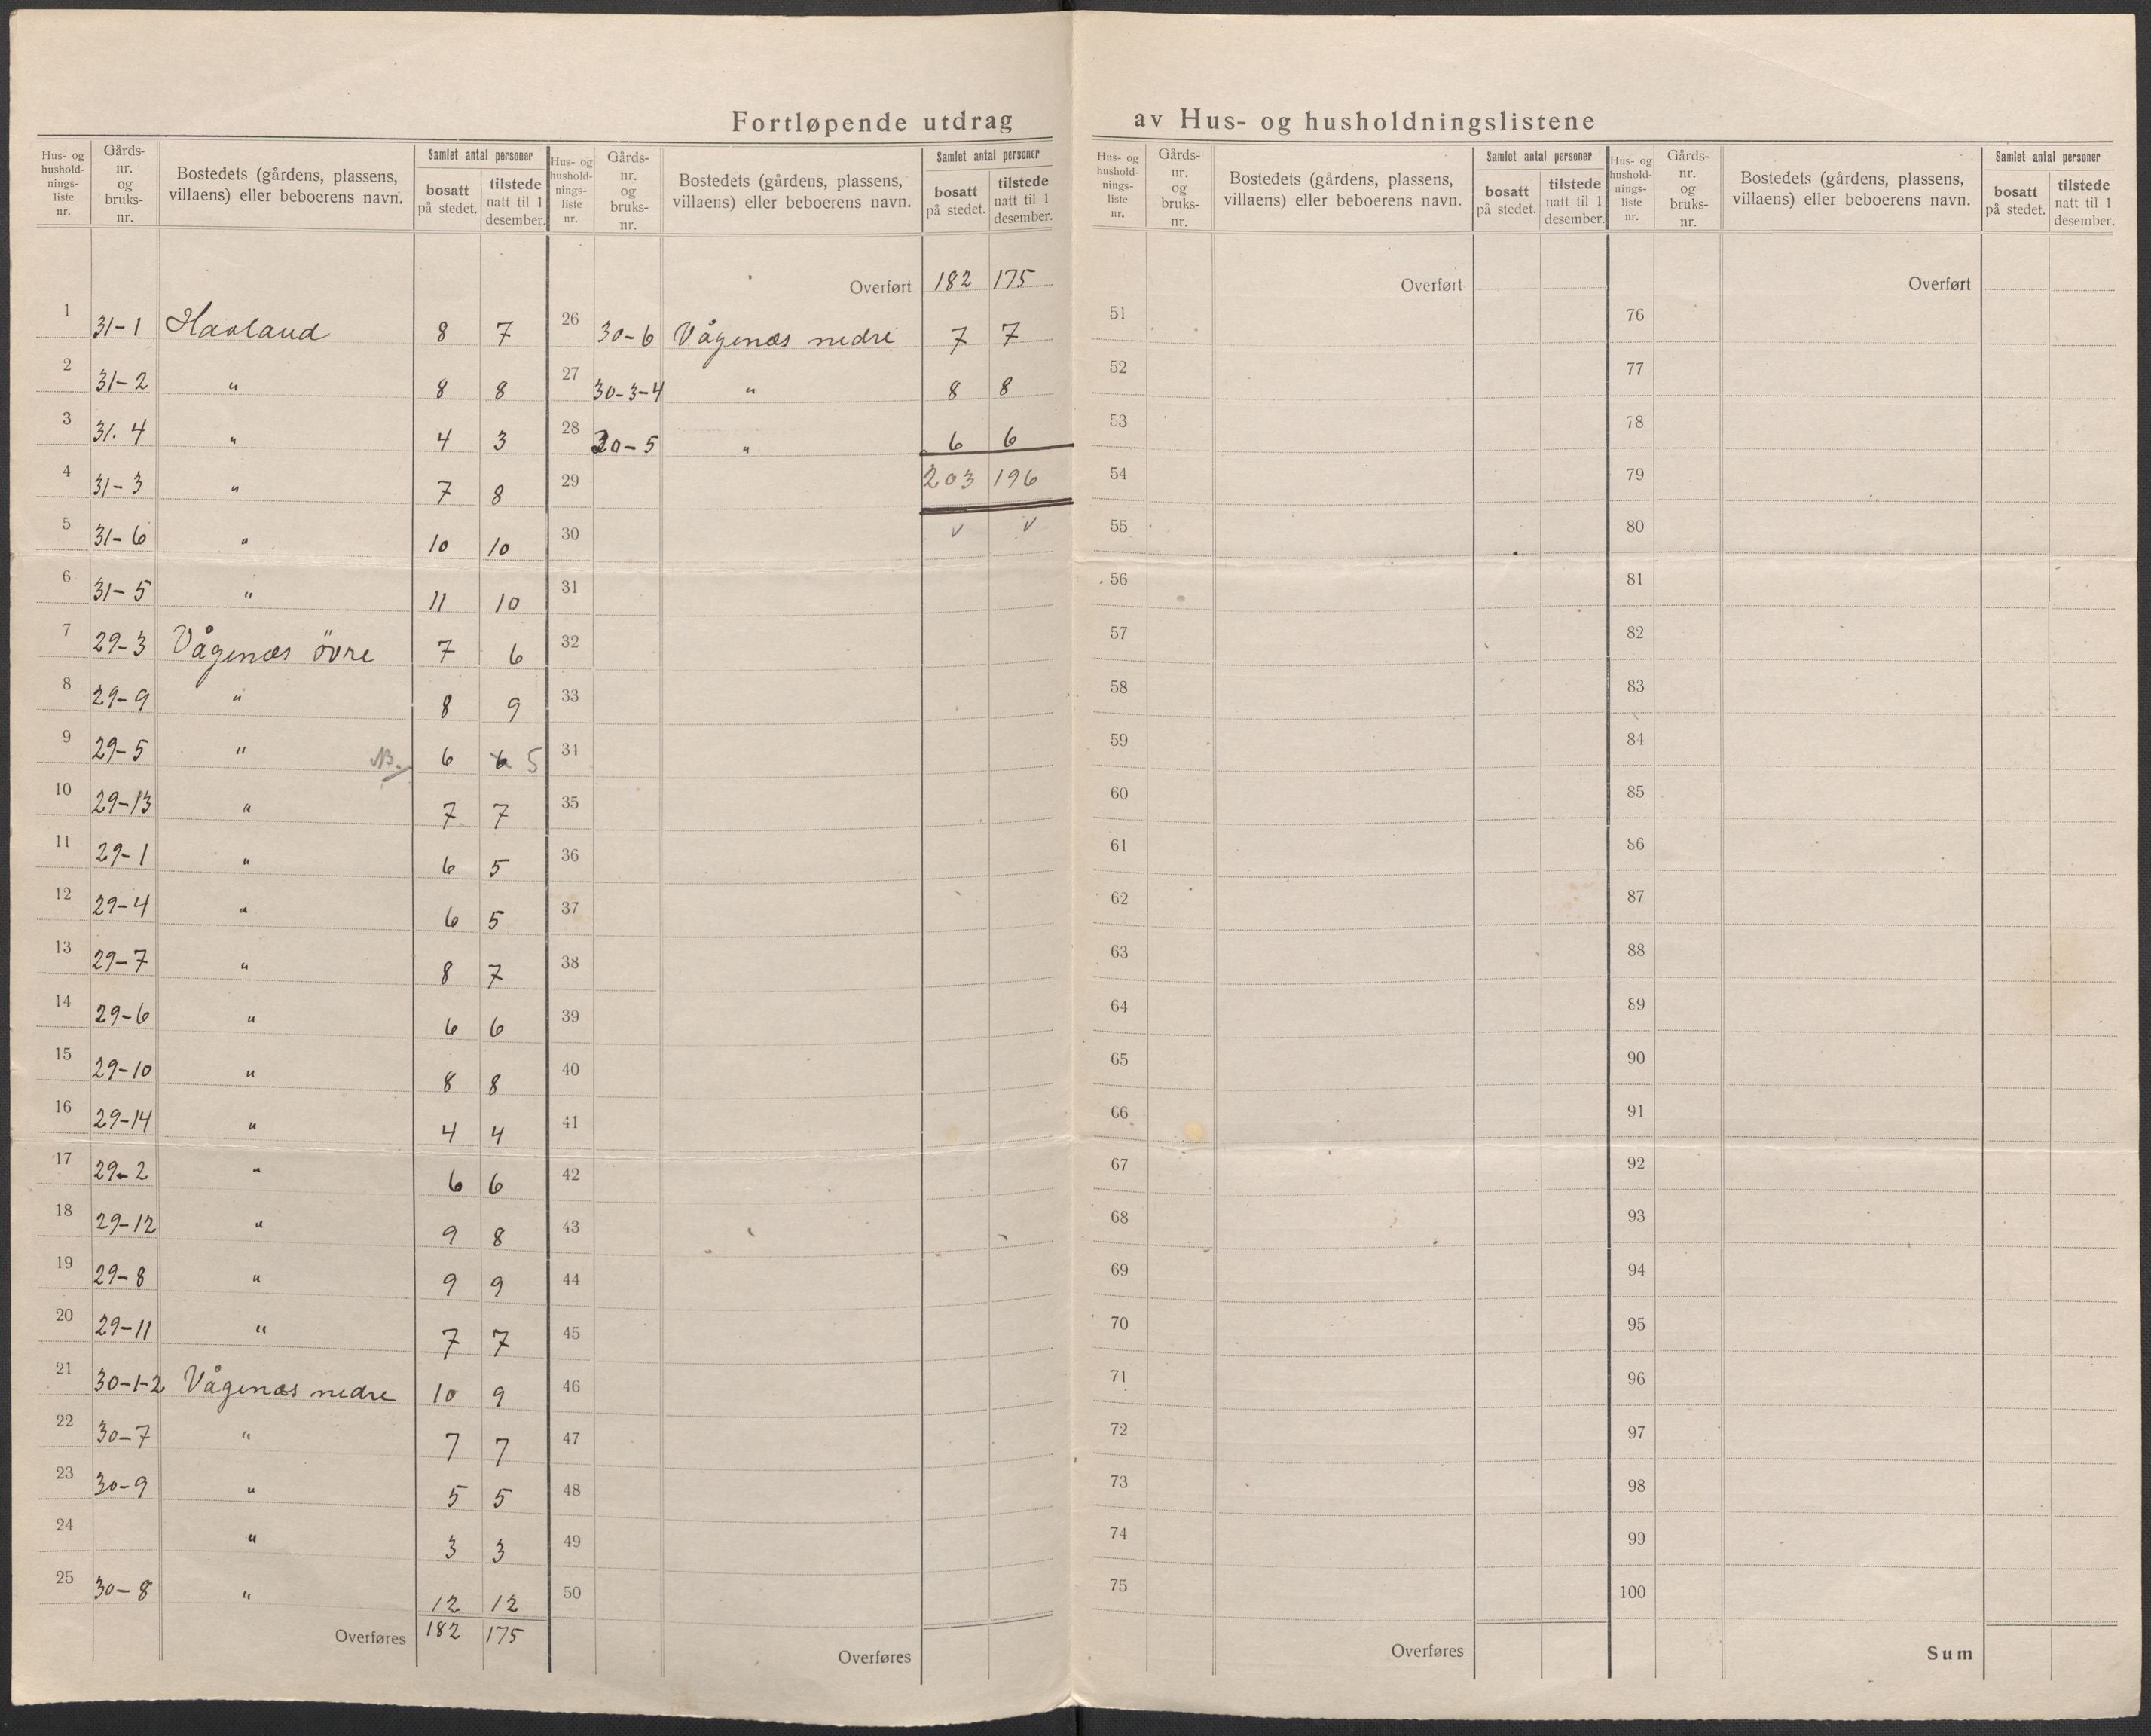 Fortløpende utdrag av Hus- og husholdningslistene
Hus- og hushold- nings- liste nr. Gårds- nr. og bruks- nr. Bostedets (gårdens, plassens, villaens) eller beboerens navn. Samlet antal personer bosatt på stedet. tilstede natt til 1 desember.
1 31-1 Havland 8 7
2 31-2 " 8 8
3 31.4 " 4 3
4 31-3 " 7 8
5 31-6 " 10 10
6 31-5 " 11 10
7 29-3 Vågenæs övre 7 6
8 29-9 " 8 9
9 29-5 " NB. 6 6 5
10 29-13 " 7 7
11 29-1 " 6 5
12 29-4 " 6 5
13 29-7 " 8 7
14 29-6 " 6 6
15 29-10 " 8 8
16 29-14 " 4 4
17 29-2 " 6 6
18 29-12 " 9 8
19 29-8 " 9 9
20 29-11 " 7 7
21 30-1-2 Vågenæs nedre 10 9
22 30-7 " 7 7
23 30-9 " 5 5
24 " 3 3
25 30-8 " 12 12
Overføres 182 175
Hus- og hushold- nings- liste nr. Gårds- nr. og bruks- nr. Bostedets (gårdens, plassens, villaens) eller beboerens navn. Samlet antal personer bosatt på stedet. tilstede natt til 1 desember.
Overført 182 175
26 30-6 Vågenæs nedre 7 7
27 30-3-4 " 8 8
28 30-5 " 6 6
29 203 196
30 v v
31
32
33
31
35
36
37
38
39
40
41
42
43
44
45
46
47
48
49
50
Overføres
Hus- og hushold- nings- liste nr. Gårds- nr. og bruks- nr. Bostedets (gårdens, plassens, villaens) eller beboerens navn. Samlet antal personer bosatt på stedet. tilstede natt til 1 desember.
Overført
51
52
53
54
55
56
57
58
59
60
61
62
63
64
65
66
67
68
69
70
71
72
73
74
75
Overføres
Hus- og hushold- nings- liste nr. Gårds- nr. og bruks- nr. Bostedets (gårdens, plassens, villaens) eller beboerens navn. Samlet antal personer bosatt på stedet. tilstede natt til 1 desember.
Overført
76
77
78
79
80
81
82
83
84
85
86
87
88
89
90
91
92
93
94
95
96
97
98
99
100
Sum